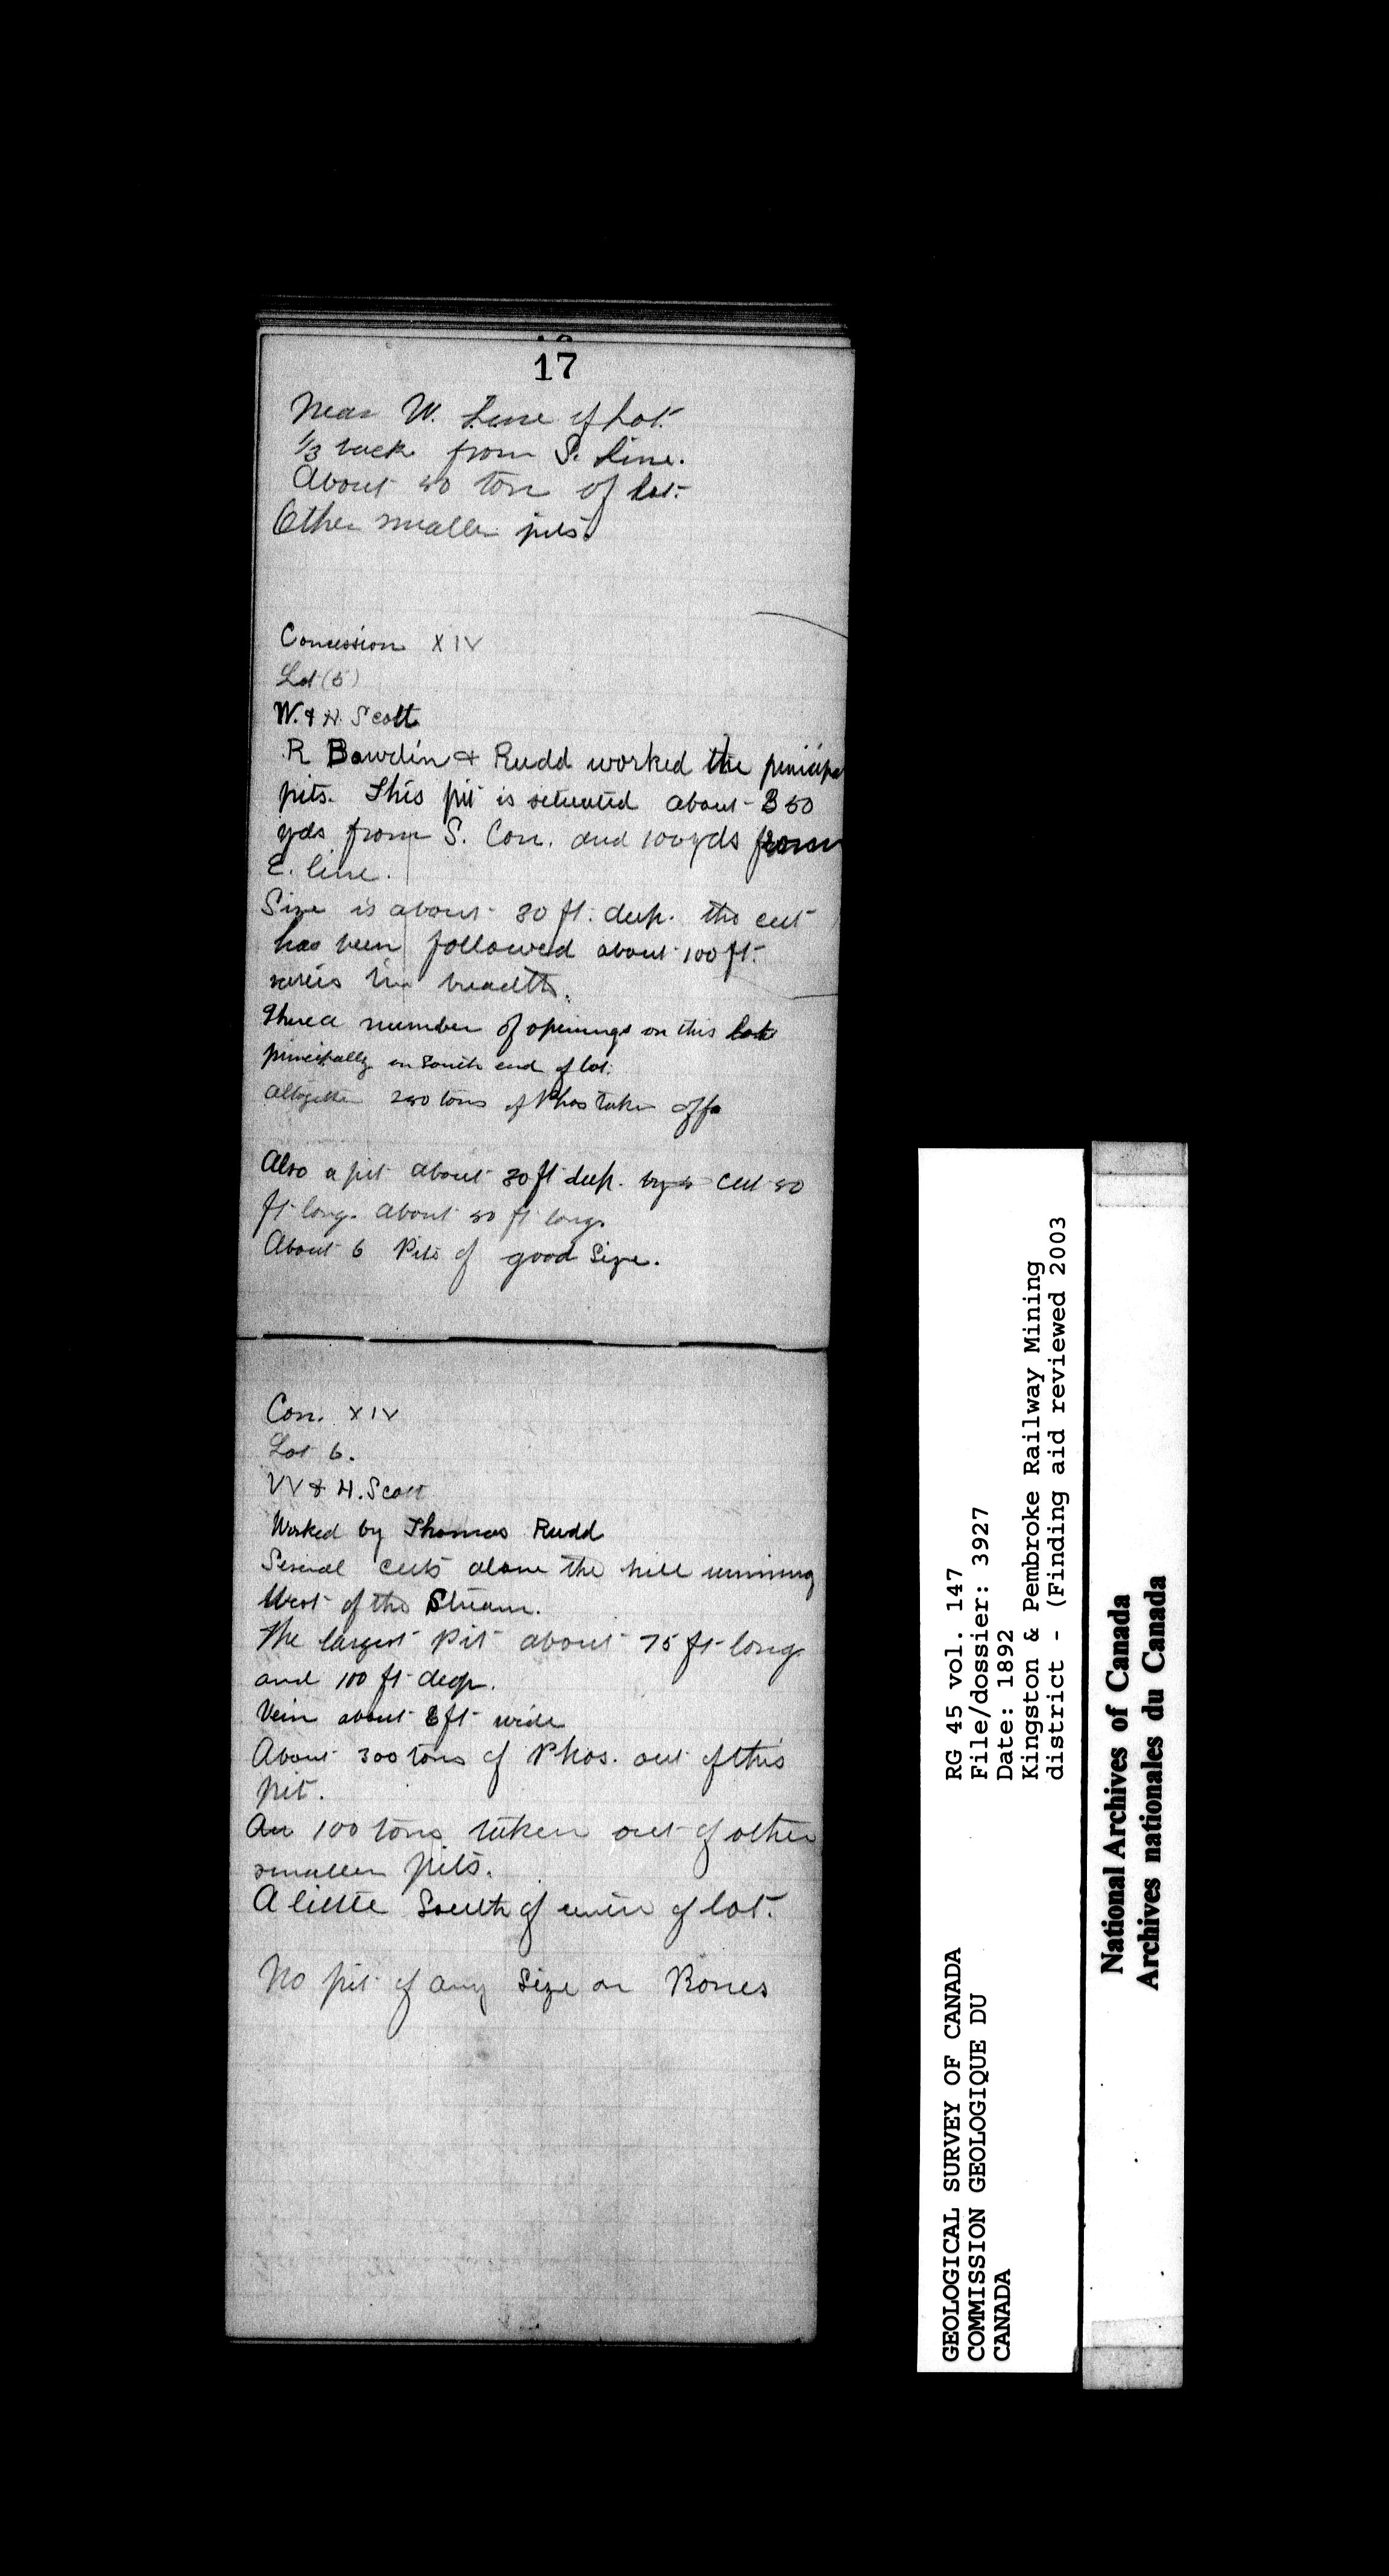 17
Near W. Line of Lot.
1/3 back from S. Line.
About 50 ton of lot.
Other smaller pits.
Concession XIV
Lot (5)
W. & H. Scott
R Bawden & Rudd worked the principal
pits. This pit is situated about 350
yds from S. Con. and 100 yds from
E. line.
Size is about 30 ft. deep. the cut
has been followed about 100 ft.
varies in breadth.
There a number of openings on this lot
principally on South end of lot.
Altogether 250 tons of Phos taken off
Also a pit about 30 ft deep. by a cut 50
ft long. about 50 ft long.
About 6 Pits of good size.
Con. XIV
Lot 6.
W & H. Scott
Worked by Thomas Rudd
Several cuts alone the hill running
West of the Stream.
The largest Pit about 75 ft long
and 100 ft deep.
Vein about 6 ft wide
About 300 tons of Phos. out of this
pit.
An 100 tons taken out of other
smaller pits.
A little South of centre of lot.
No pit of any size on
GEOLOGICAL SURVEY OF CANADA
COMMISSION GEOLOGIQUE DU
CANADA
RG 45 vol. 147
File/dossier: 3927
Date: 1892
Kingston & Pembroke Railway Mining
district - (Finding aid reviewed 2003
National Archives of Canada
Archives nationales du Canada